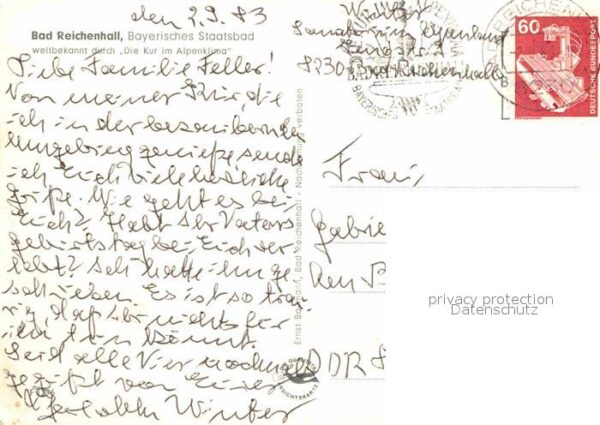 den 2.9.83
Bad Reichenhall, Bayerisches Staatsbad
weltbekannt durch „Die Kur im Alpenklima"
Liebe Familie Feller!
Von meiner Kur, die
ich in der bezaubernden
Umgebung genieße sende
ich Euch viele herzliche
Grüße. Wie geht es bei
Euch? Habt Ihr Vaters
geburtstag bei Euch ver
lebt? Ich hatte ihm ge
schrieben. Es ist so trau
rig, daß wir nichts für
ihn tun könnt.
Seid alle Vier nochmals
gegrüßt von Eurer
Winter
Ernst Baumann, Bad Reichenhall - Nachahmung verboten
Winter
Sanatorium Alpenland
8230 Bad Reichenhall
BAYERISCHES STAATSBAD
60
DEUTSCHE BUNDESPOST
Frau
Gabrie
DDR 8
privacy protection
Datenschutz